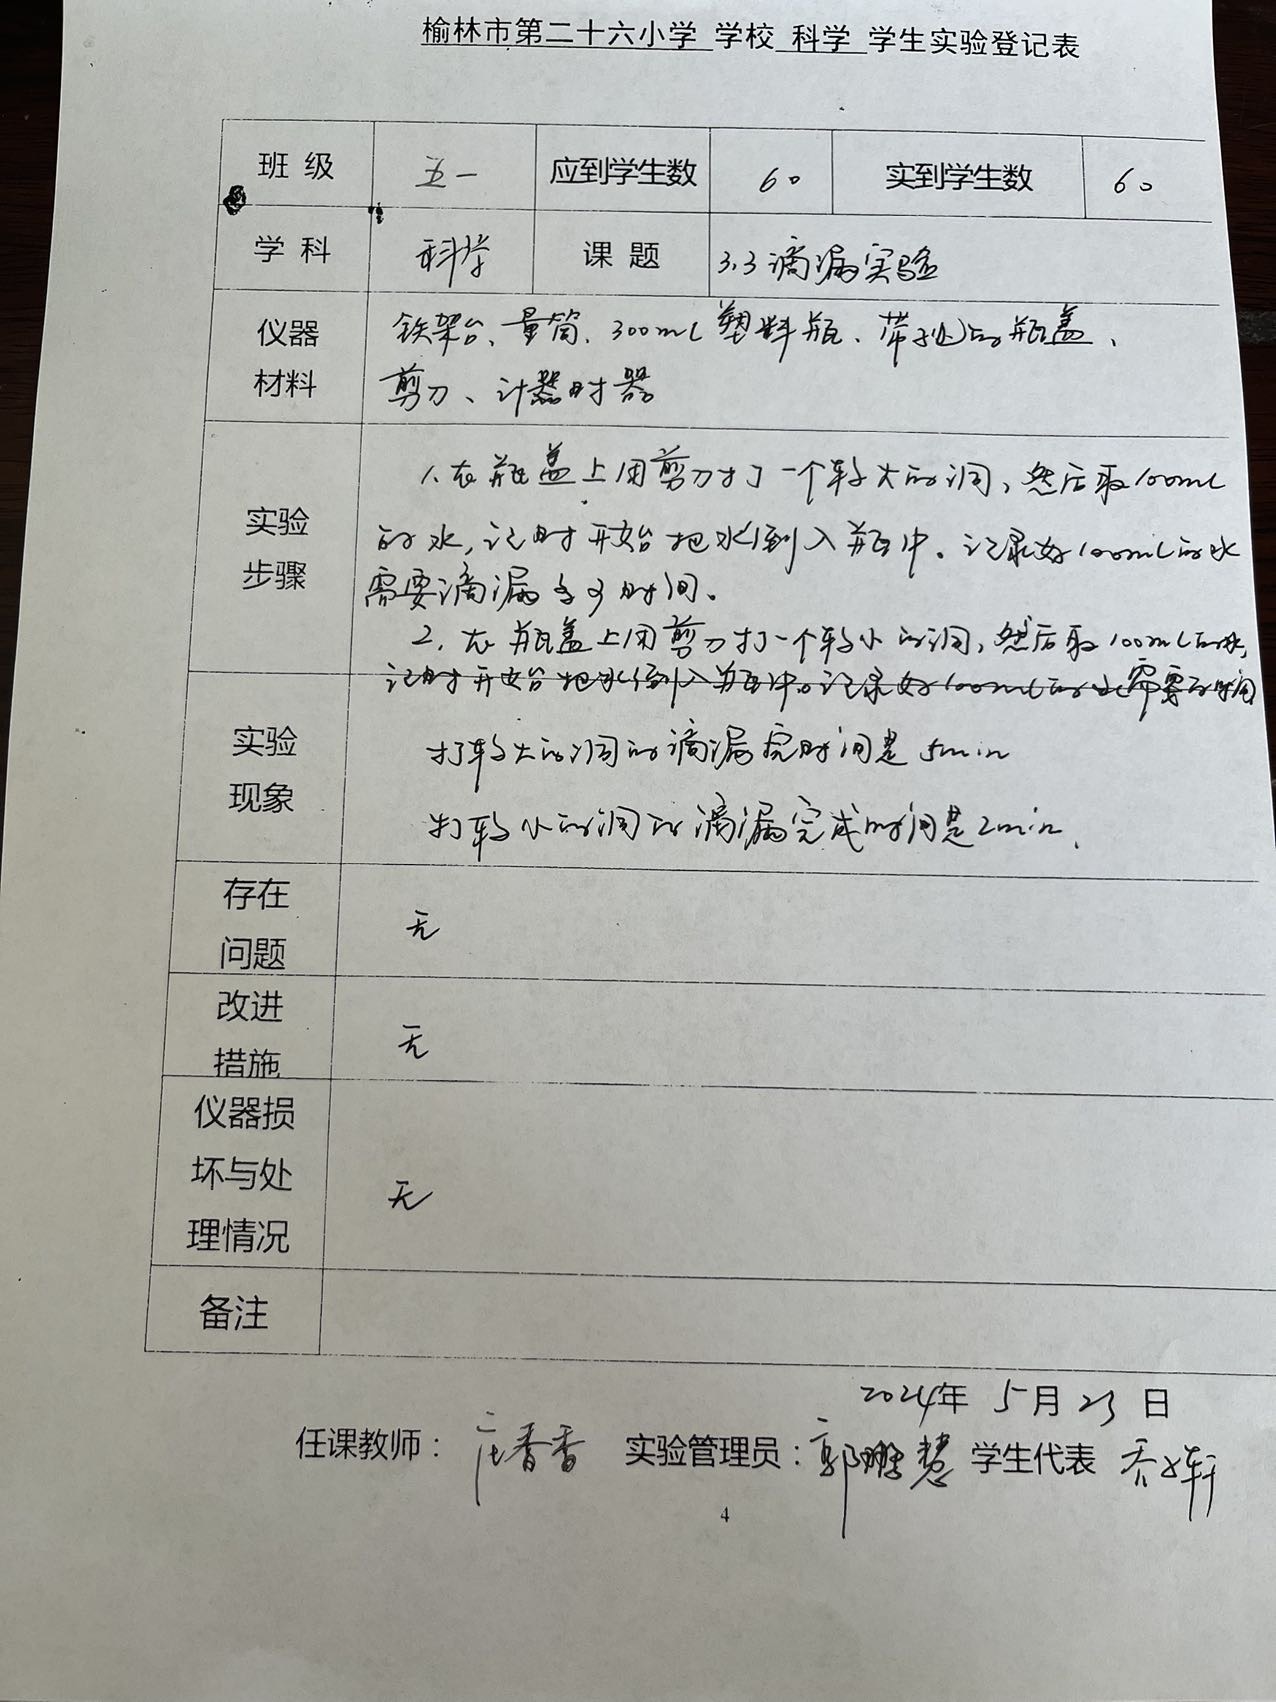 榆林市第二十六小学 学校 科学 学生实验登记表
班 级 五一 应到学生数 60 实到学生数 60
学 科 科学 课 题 3.3滴漏实验
仪器 材料
铁架台、量筒、300mL塑料瓶、带孔的瓶盖、
剪刀、计时器
实验 步骤
1.在瓶盖上用剪刀打了一个较大的洞,然后取100mL
的水,记时开始把水倒入瓶中。记录好100mL的水
需要滴漏多少时间。
2.在瓶盖上用剪刀打一个较小的洞,然后取100mL的水,
记时开始把水倒入瓶中。记录好100mL的水需要的时间
实验 现象
打较大的洞的滴漏完时间是5min
打较小的洞的滴漏完成时间是2min.
存在 问题 无
改进 措施 无
仪器损 坏与处 理情况 无
备注
2024年 5月 23 日
任课教师: 庄香香 实验管理员: 郭 慧 学生代表 乔 轩
4